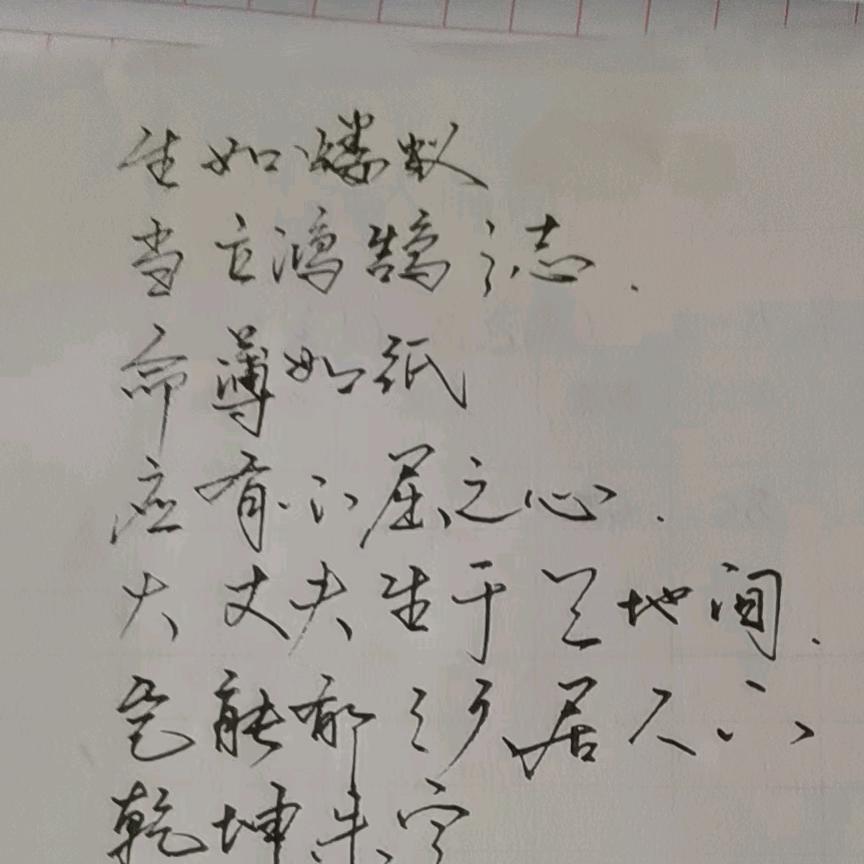 生如蝼蚁
当立鸿鹄之志.
命薄如纸
应有不屈之心.
大丈夫生于天地间.
岂能郁郁居人下
乾坤未定